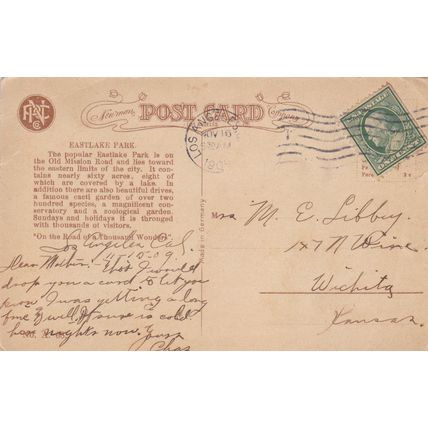 Newman POST CARD Company
LOS ANGELES, CAL.
NOV 16
190
U.S. POSTAGE
EASTLAKE PARK.
The popular Eastlake Park is on
the Old Mission Road and lies toward
the eastern limits of the city. It con-
tains nearly sixty acres, eight of
which are covered by a lake. In
addition there are also beautiful drives,
a famous cacti garden of over two
hundred species, a magnificent con-
servatory and a zoological garden.
Sundays and holidays it is thronged
with thousands of visitors.
"On the Road of a Thousand Wonders"
Made in Germany
Los Angeles Cal.
11-15-09.
Dear Mother:- Thot I would
drop you a card. & let you
know I was getting a long
fine & will. It sure is cold
here nights now. Yours
Chas
Mrs M. E. Libbey.
Wichita
Kansas.